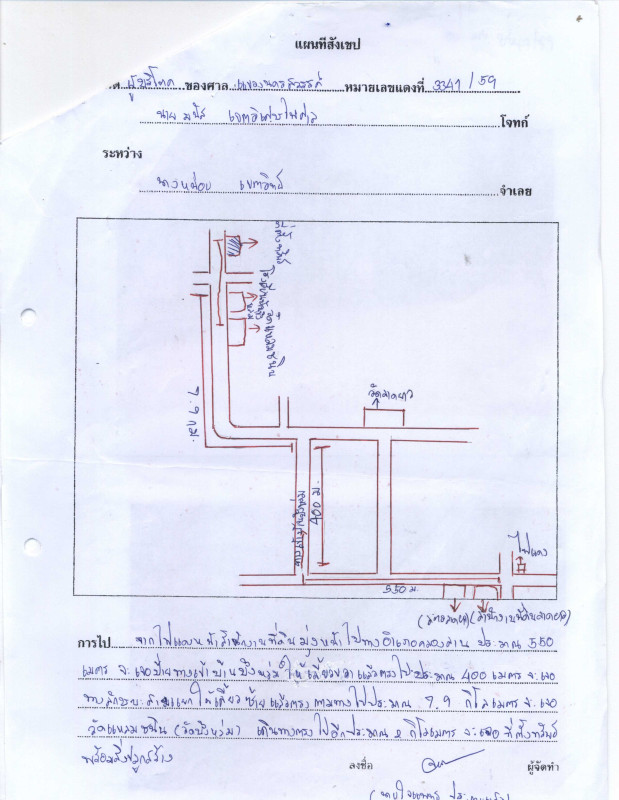 แผนที่สังเขป
ผู้บริโภค ของศาล แขวงนครสวรรค์ หมายเลขแดงที่ 3341/59
นาย มนัส โจทก์
ระหว่าง
นางหน่อย จำเลย
วัดลาดยาว
7.9 กม.
400 ม.
ไฟแดง
550 ม.
การไป จากไฟแดงหน้าสำนักงานที่ดินมุ่งหน้าไปทางอำเภอคลองลาน ประมาณ 550
เมตร จะเจอป้ายทางเข้าบ้านบึงหล่ม ให้เลี้ยวขวาแล้วตรงไปประมาณ 400 เมตร จะเจอ
ทางลักษณะสามแยก ให้เลี้ยวซ้ายแล้วตรงตามทางไปประมาณ 7.9 กิโลเมตร จะเจอ
(วัดบึงหล่ม) เดินทางตรงไปอีกประมาณ กิโลเมตร จะเจอ ที่ตั้งทรัพย์
พร้อมสิ่งปลูกสร้าง
ลงชื่อ ผู้จัดทำ